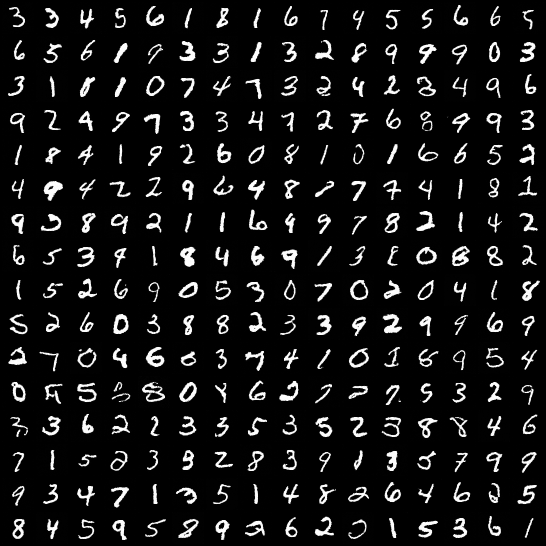 3 3 4 5 6 1 8 1 6 7 4 5 5 6 6 5
6 5 6 1 9 3 3 1 3 2 8 9 9 9 0 3
3 1 1 1 0 7 4 7 3 2 4 2 8 4 9 6
9 2 4 9 7 3 3 4 7 2 7 6 8 9 9 3
1 8 4 1 9 2 6 0 8 1 0 1 6 6 5 2
4 9 4 2 2 9 6 4 8 7 7 4 1 8 1
9 5 8 9 2 1 1 6 9 9 7 8 2 1 4 2
6 5 3 9 1 8 4 6 9 1 3 0 8 8 2
1 5 2 6 9 0 5 3 0 7 0 2 0 4 1 8
5 2 6 0 3 8 8 2 3 3 9 2 9 9 6 9
2 7 0 4 6 3 7 4 1 0 1 8 9 5 4
0 5 8 0 6 2 7 5 3 2 9
3 6 2 2 3 3 5 3 5 2 8 8 8 4 6
7 1 5 2 3 3 2 8 3 9 1 3 5 7 9 9
9 3 4 7 1 3 5 1 4 8 2 6 4 6 2 5
8 4 5 9 5 8 9 2 6 2 1 5 3 6 1